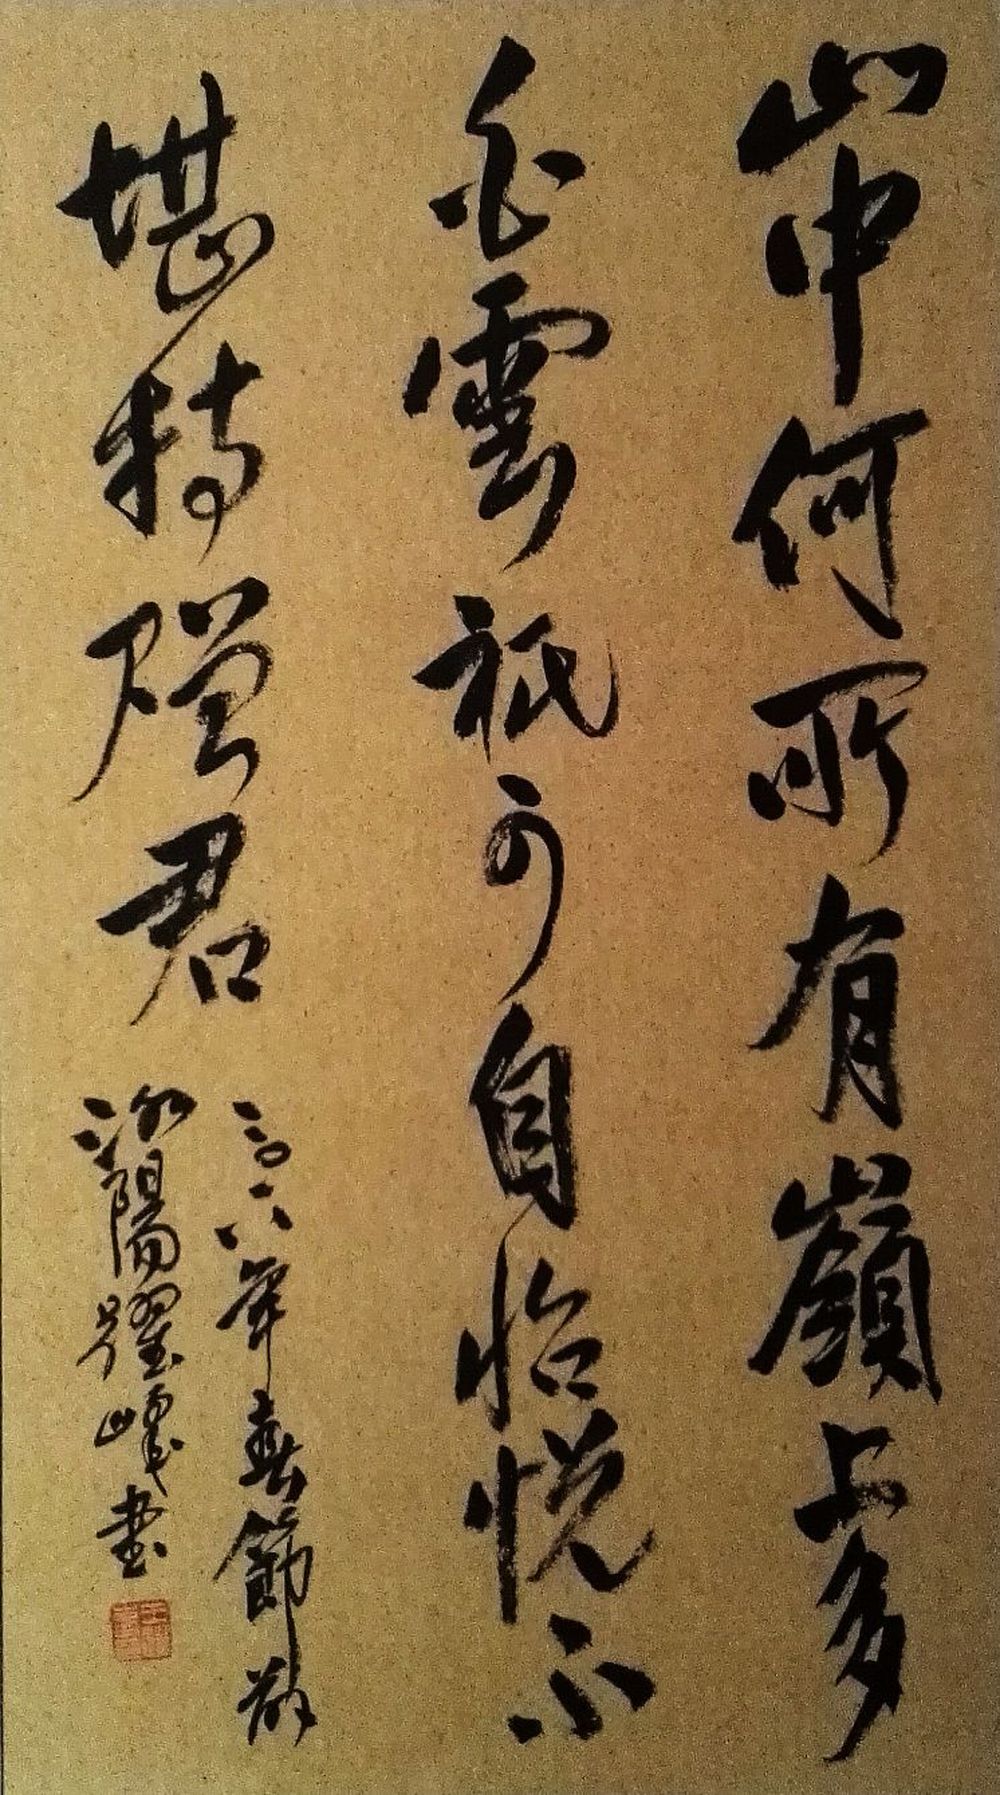 山中何所有嶺上多
白雲祇可自怡悅不
堪持贈君
二〇一八年春節前
陽躍峰書